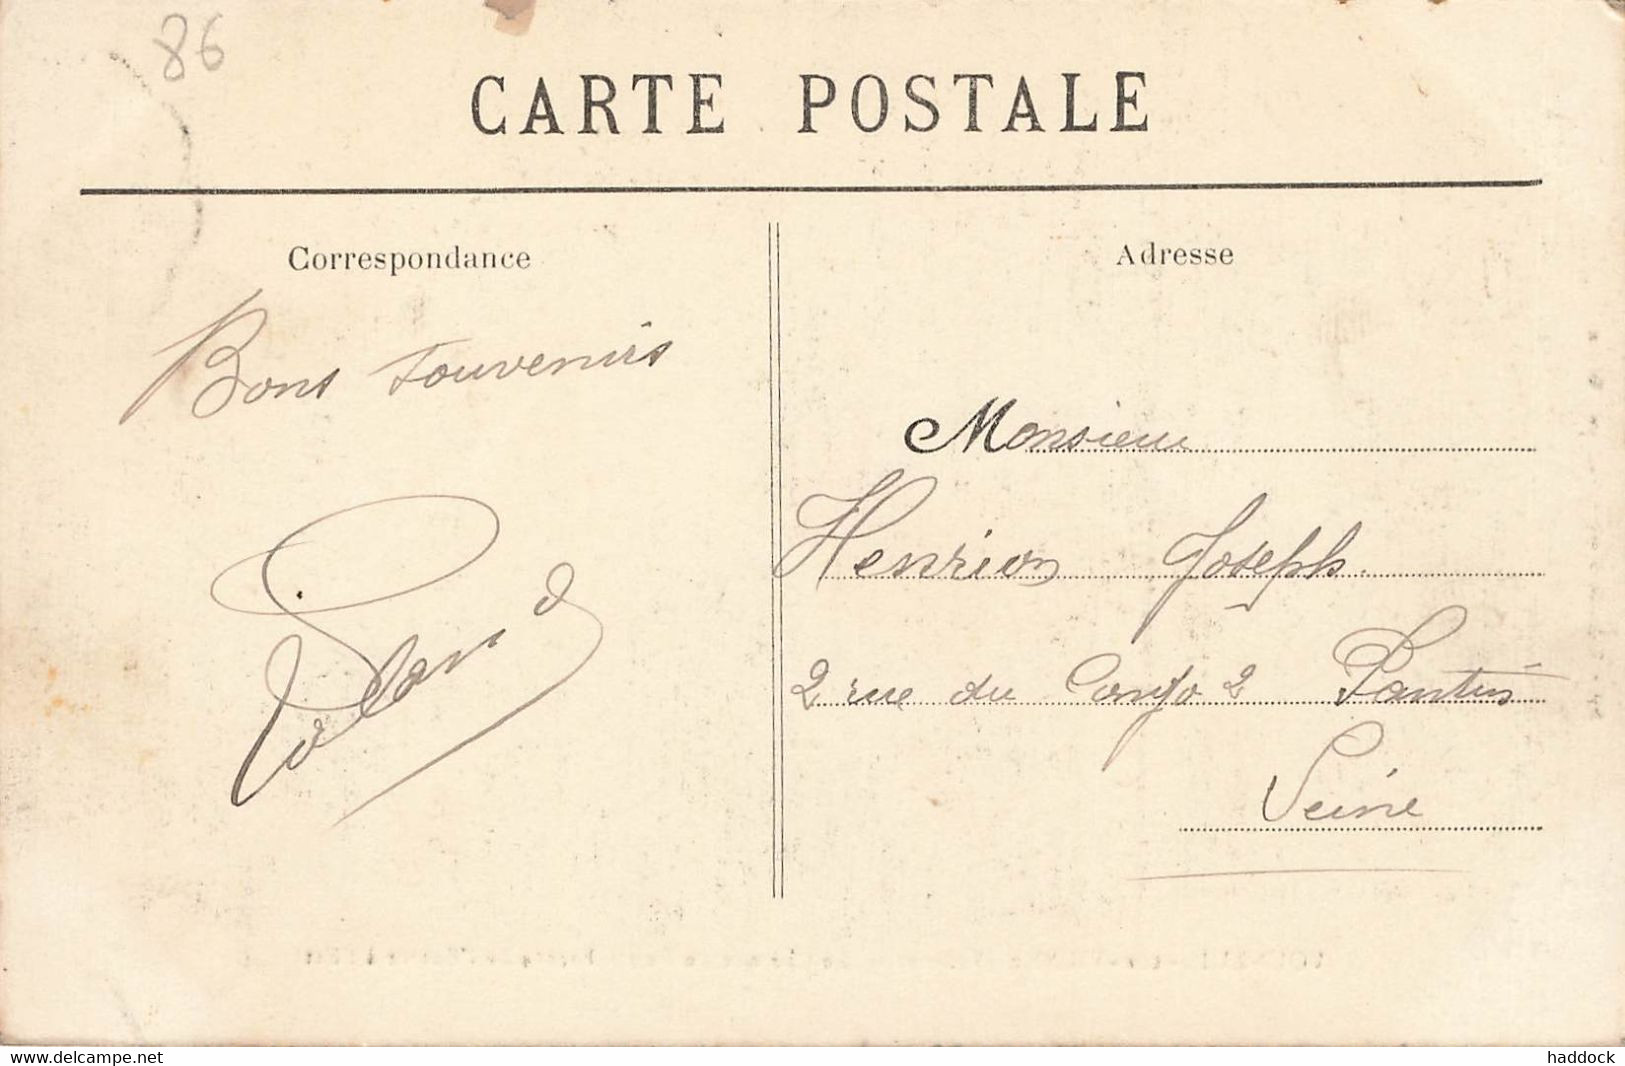 86
CARTE POSTALE
Correspondance
Bons souvenirs
Adresse
Monsieur
Henrion Joseph.
2 rue du Congo 2 Pantin
Seine
www.delcampe.net
haddock